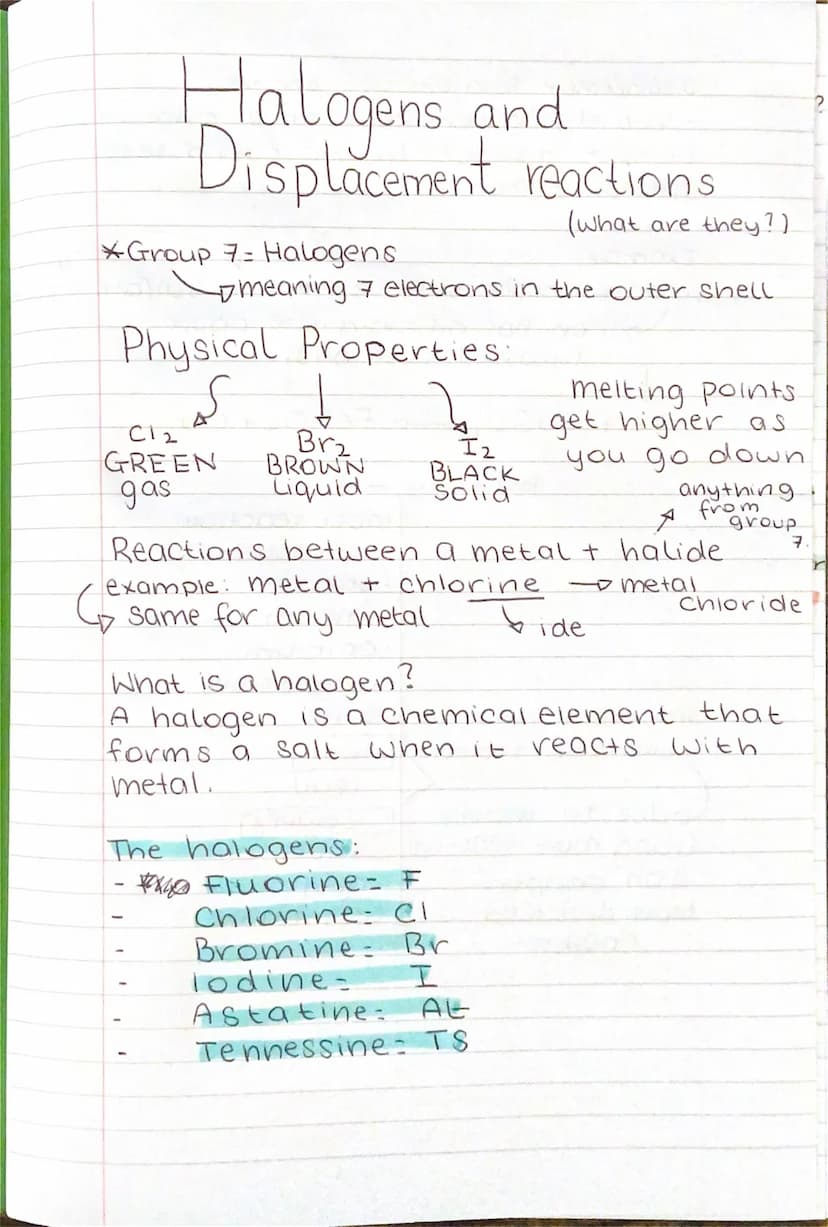 Halogens and
Displacement reactions
(What are they?)
*Group 7 = Halogens
meaning 7 electrons in the outer shell
Physical Properties:
Cl2
GREEN
gas
Br2
BROWN
Liquid
I2
BLACK
Solid
melting points
get higher as
you go down
anything
from
group
7.
Reactions between a metal + halide
example: metal + chlorine → metal
chloride
same for any metal
ide
What is a halogen?
A halogen is a chemical element that
forms a salt when it reacts with
metal.
The halogens:
- Fluorine = F
- Chlorine = Cl
- Bromine = Br
- Iodine = I
- Astatine = At
- Tennessine = TS